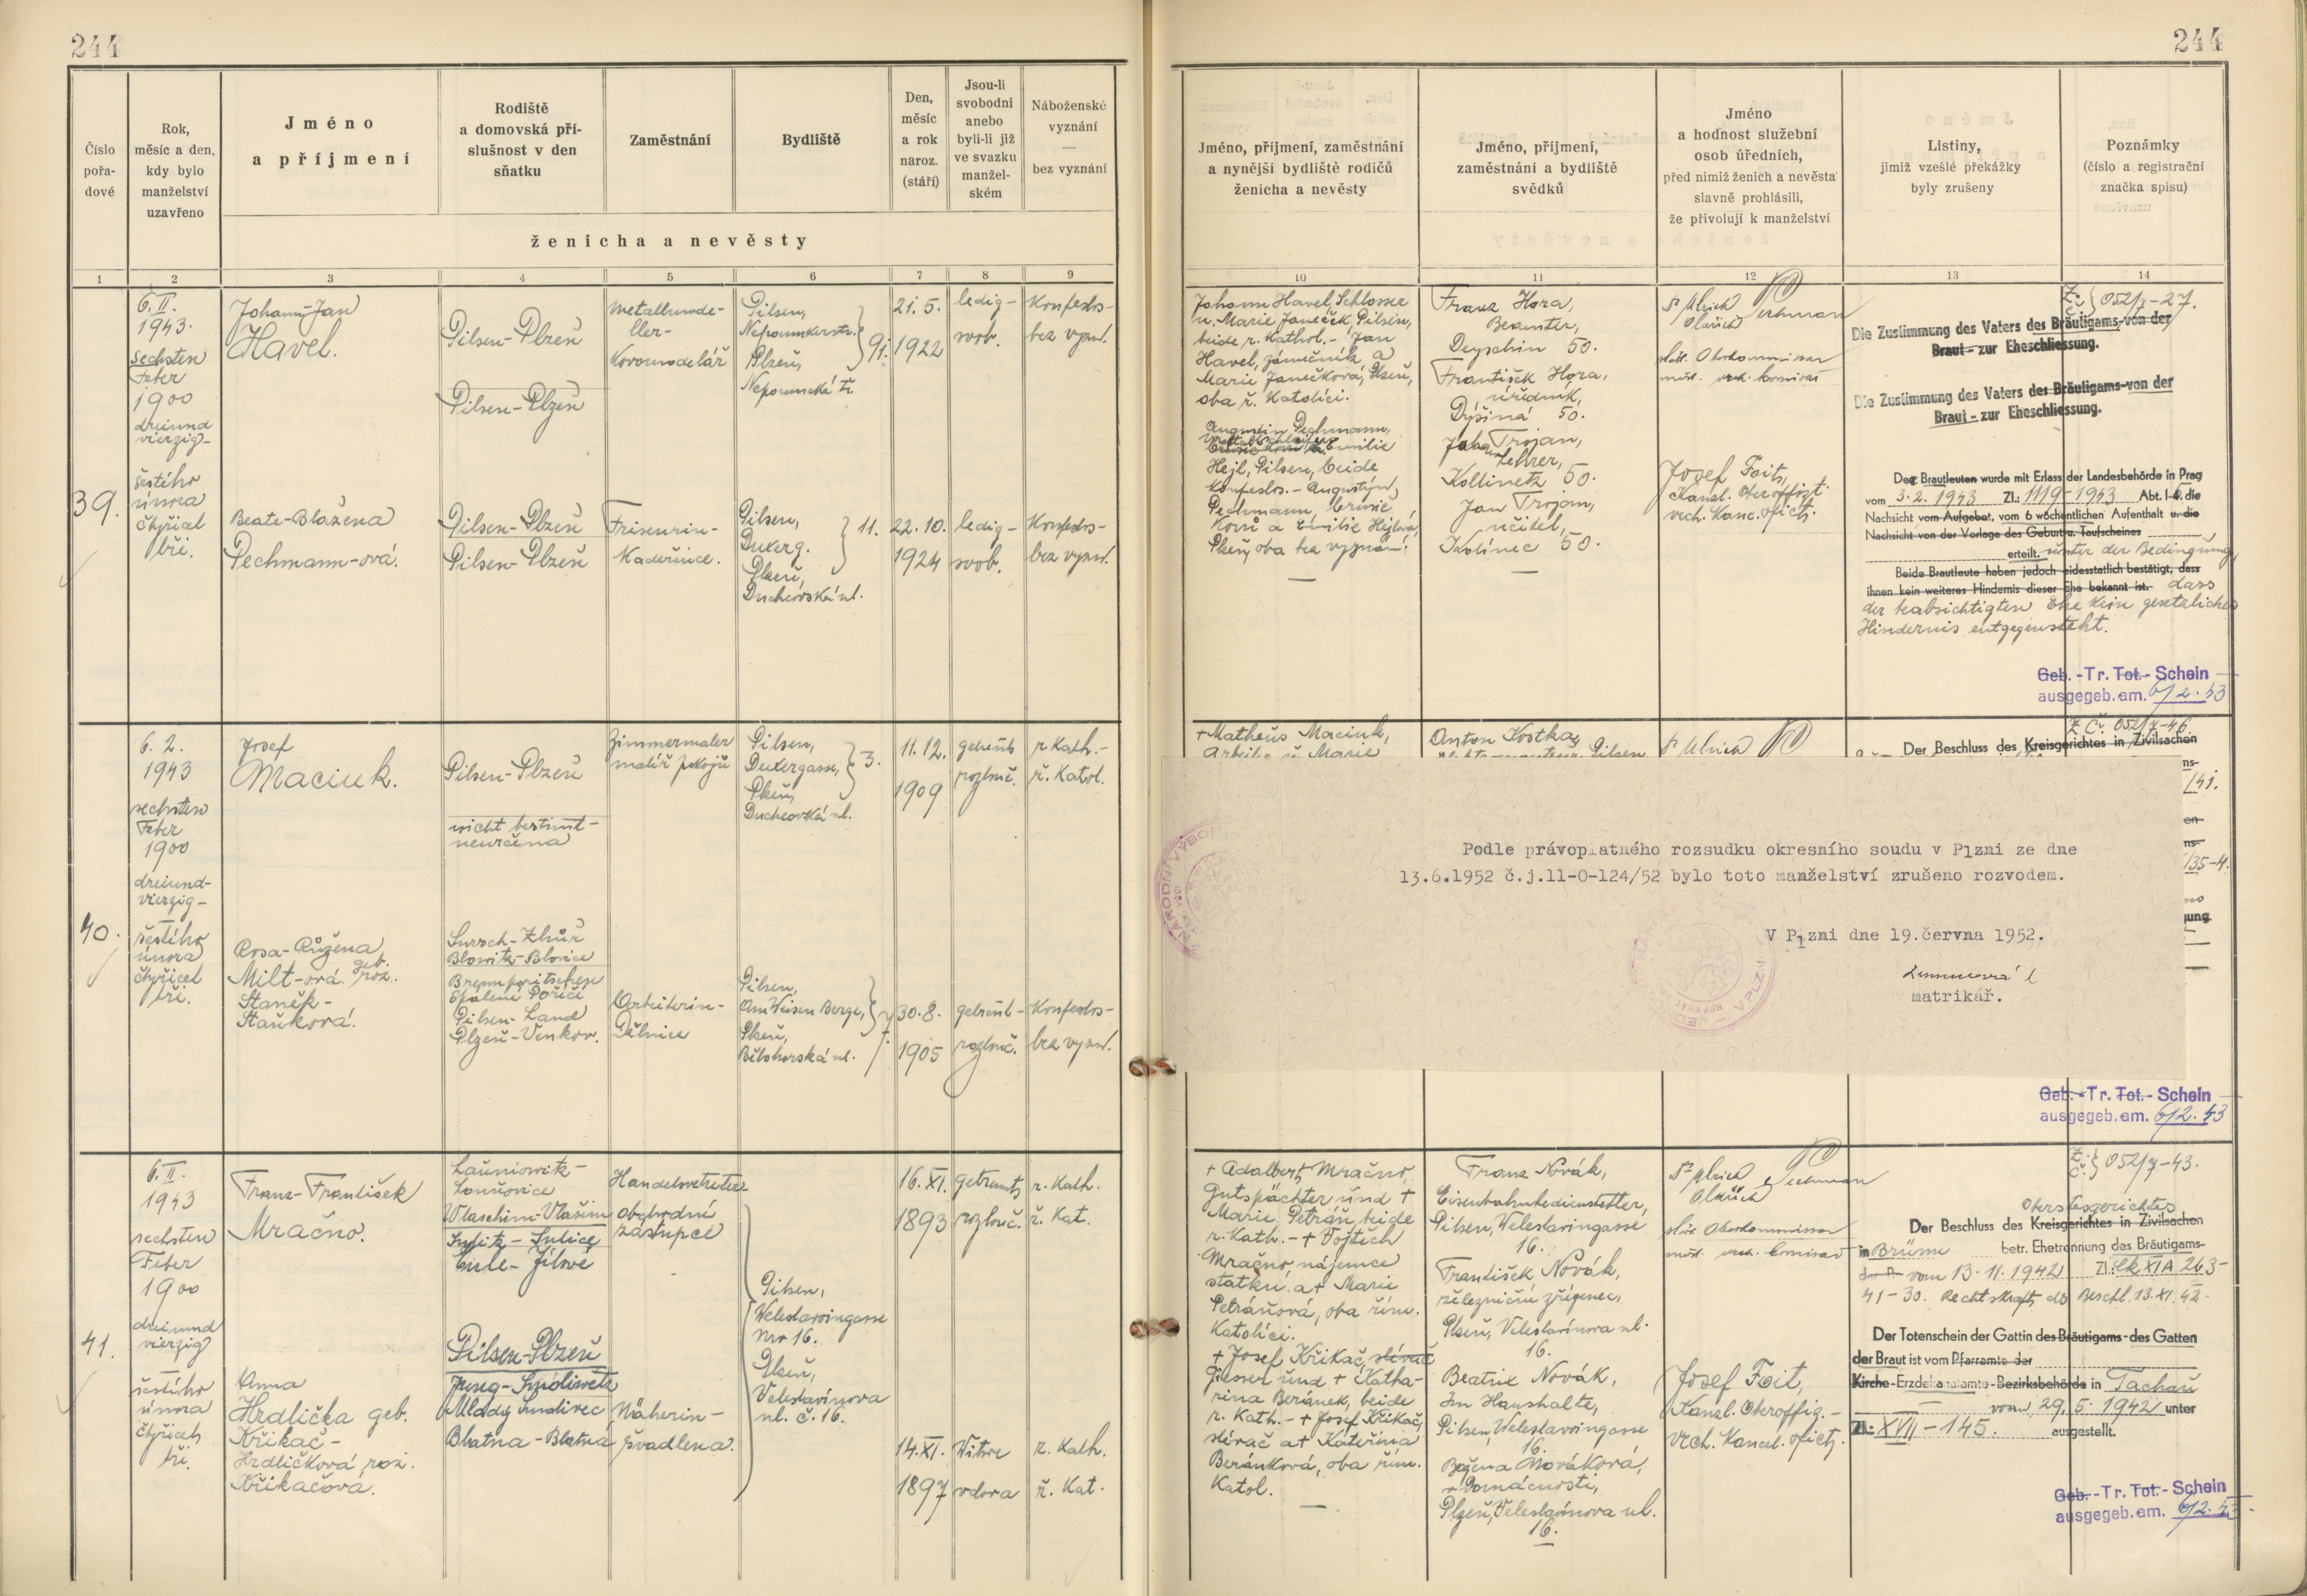 244
Číslo
pořa-
dové
Rok,
měsíc a den,
kdy bylo
manželství
uzavřeno
Jméno
a příjmení
Rodiště
a domovská pří-
slušnost v den
sňatku
Zaměstnání
Bydliště
Den,
měsíc
a rok
naroz.
(stáří)
Jsou-li
svobodni
anebo
byli-li již
ve svazku
manžel-
ském
Náboženské
vyznání
—
bez vyznání
ženicha a nevěsty
1 2 3 4 5 6 7 8 9
39.
6. II.
1943.
Sechsten
Feber
1900
dreiund
vierzig-
šestého
února
čtyřicet
tři.
Johann-Jan
Havel.
Pilsen-Plzeň
Pilsen-Plzeň
Metallmode-
ller-
Kovomodelář
Pilsen,
Nepomukerstr.
Plzeň,
Nepomucká tř.
91.
21. 5.
1922
ledig-
svob.
Konfeslos-
bez vyzn.
Beate-Blažena
Pechmann-ová.
Pilsen-Plzeň
Pilsen-Plzeň
Friseurin-
Kadeřnice.
Pilsen,
Duxerg.
Plzeň,
Duchcovská ul.
11.
22. 10.
1924
ledig-
svob.
Konfeslos-
bez vyzn.
40.
6. 2.
1943
sechsten
Feber
1900
dreiund-
vierzig-
šestého
února
čtyřicet
tři.
Josef
Maciuk.
Pilsen-Plzeň
nicht bestimt-
neurčena
Zimmermaler
malíř pokojů
Pilsen,
Duxergasse,
Plzeň,
Duchcovská ul.
3.
11. 12.
1909
getrennt
rozluč.
r. Kath.-
ř. Katol.
Rosa-Růžena
Milt-ová geb.
roz.
Staněk-
Staňková.
Sursch-Zhůř
Blowitz-Blovice
Brennporitschen
Spálené Poříčí
Pilsen-Land
Plzeň-Venkov.
Arbeiterin-
Dělnice
Pilsen,
Am Weisen Berge,
Plzeň,
Bělohorská ul.
7.
30. 8.
1905
getrennt-
rozluč.
Konfeslos-
bez vyzn.
41.
6. II.
1943
sechsten
Feber
1900
dreiund
vierzig
šestého
února
čtyřicet
tři.
Franz-František
Mračno.
Launiowitz-
Louňovice
Wlaschim-Vlašim
Sulitz-Sulice
Eule-Jílové
Handelsvertreter-
obchodní
zástupce
16. XI.
1893
getrennt
rozluč.
r. Kath.
ř. Kat.
Pilsen,
Weleslawingasse
Nr 16.
Plzeň,
Veleslavínova
ul. č. 16.
Anna
Hrdlička geb.
Křikač-
Hrdličková roz.
Křikačová.
Pilsen-Plzeň
Jung-Smoliwetz
Mladý Smolivec
Blatna-Blatná
Näherin-
švadlena.
14. XI.
1897
Witwe
vdova
r. Kath.
ř. Kat.
244
Jméno, příjmení, zaměstnání
a nynější bydliště rodičů
ženicha a nevěsty
Jméno, příjmení,
zaměstnání a bydliště
svědků
Jméno
a hodnost služební
osob úředních,
před nimiž ženich a nevěsta
slavně prohlásili,
že přivolují k manželství
Listiny,
jimiž vzešlé překážky
byly zrušeny
Poznámky
(číslo a registrační
značka spisu)
10 11 12 13 14
Johann Havel, Schlosser
u. Marie Janeček, Pilsen,
beide r. Kathol. - Jan
Havel, zámečník a
Marie Janečková, Plzeň,
oba ř. Katolíci.
Augustin Pechmann,
Emilie
Hejl, Pilsen, beide
Konfeslos. - Augustýn
Pechmann, brusič
kovů a Emilie Hejlová,
Plzeň, oba bez vyznání.
Franz Hora,
Beamter,
Deyschin 50.
František Hora,
úředník,
Dýšiná 50.
Johann Trojan,
Lehrer,
Kollinetz 50.
Jan Trojan,
učitel,
Kolinec 50.
Dr Ulrich
Oldřich
Pechman
städt. Oberkommissar
měst. vrch. komisař
Josef Foit,
Kanzl. Oberoffizt.
vrch. Kanc. oficiř.
Z.:
Č.:
052/7-27.
Die Zustimmung des Vaters des Bräutigams-von der
Braut - zur Eheschliessung.
Die Zustimmung des Vaters des Bräutigams-von der
Braut - zur Eheschliessung.
Den Brautleuten wurde mit Erlass der Landesbehörde in Prag
vom 3. 2. 1943 Zl.: 1119-1943 Abt. I-6. die
Nachsicht vom Aufgebot, vom 6 wöchentlichen Aufenthalt u. die
Nachsicht von der Vorlage des Geburt u. Taufscheines
erteilt. unter der Bedingung,
Beide Brautleute haben jedoch eidesstatlich bestätigt, dass
ihnen kein weiteres Hindernis dieser Ehe bekannt ist. dass
der beabsichtigten Ehe kein gesetzliches
Hindernis entgegensteht.
Geb. - Tr. Tot. - Schein
ausgegeb. am. 6/2. 43
+ Matheus Maciuk,
Arbeiter u. Marie
Anton Kostka,
Pilsen
Dr Ulrich
Z. Č. 052/7-46.
Der Beschluss des Kreisgerichtes in Zivilsachen
ns-
/41.
en
ns-
/35-4.
no
jung
Podle právoplatného rozsudku okresního soudu v Plzni ze dne
13.6.1952 č.j.11-0-124/52 bylo toto manželství zrušeno rozvodem.
V Plzni dne 19.června 1952.
matrikář.
Geb. - Tr. Tot. - Schein
ausgegeb. am. 6/2. 43
+ Adalbert Mračno,
Gutspächter und +
Marie Petráň, beide
r. Kath. - + Vojtěch
Mračno, nájemce
statku a + Marie
Petráňová, oba řím.
Katolíci.
+ Josef Křikač, slévač
Giesser und + Katha-
rina Beránek, beide
r. Kath. - + Josef Křikač,
slévač a + Kateřina
Beránková, oba řím.
Katol.
Franz Novák,
Eisenbahnbediensteter,
Pilsen, Weleslawingasse
16.
František Novák,
železniční zřízenec,
Plzeň, Veleslavínova ul.
16.
Beatrix Novák,
Im Haushalte,
Pilsen, Weleslawingasse
16.
Božena Nováková,
v domácnosti,
Plzeň, Veleslavínova ul.
16.
Dr Ulrich
Oldřich
Pechman
städt. Oberkommissar
měst. vrch. komisař
Josef Foit,
Kanzl. Oberoffiz.-
vrch. Kancel. oficiř.
Z.:
Č.:
052/7-43.
Oberstesgerichtes
Der Beschluss des Kreisgerichtes in Zivilsachen
in Brünn betr. Ehetrennung des Bräutigams-
der B vom 13. 11. 1942 Zl.: Ck XI A 263-
41-30. Rechtskraft des Beschl. 13. XI. 42.
Der Totenschein der Gattin des Bräutigams - des Gatten
der Braut ist vom Pfarramte der
Kirche-Erzdekanatamte-Bezirksbehörde in Tachau
vom 29. 5. 1942 unter
Zl.: XVII-145. ausgestellt.
Geb. - Tr. Tot. - Schein
ausgegeb. am. 6/2. 43